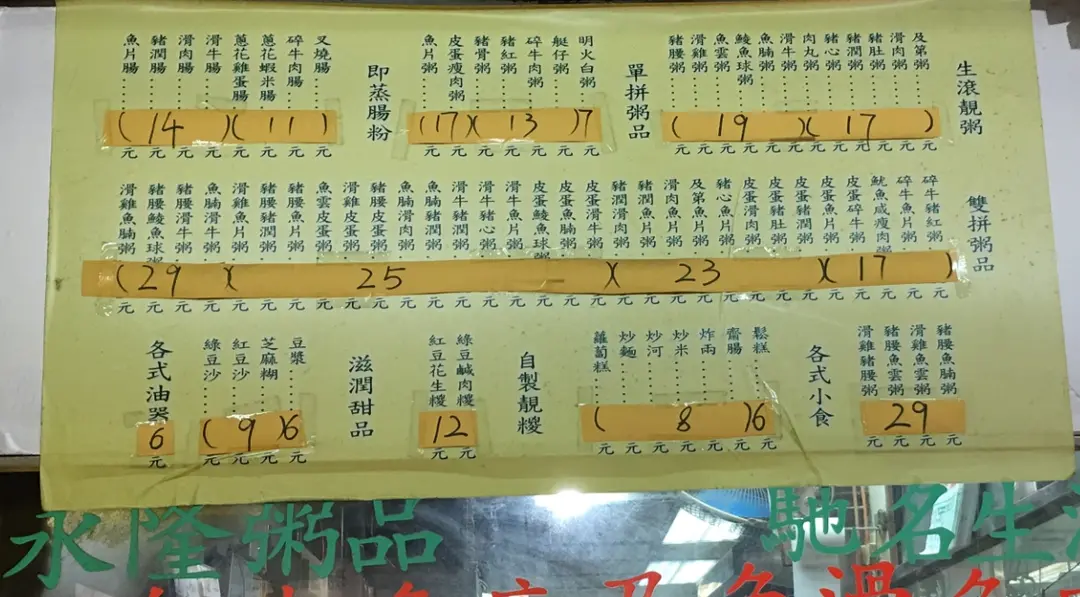 生滾靚粥
及第粥
滑肉粥
豬肚粥
豬潤粥
豬心粥
肉丸粥
滑牛粥
魚腩粥
鯪魚球粥
魚雲粥
滑雞粥
豬腰粥
( 19 )( 17 )
元 元 元 元 元 元 元 元 元 元
單拼粥品
明火白粥
艇仔粥
碎牛肉粥
豬紅粥
豬骨粥
皮蛋瘦肉粥
魚片粥
(17)( 13 )7
元 元 元 元 元 元 元
即蒸腸粉
叉燒腸
碎牛肉腸
蔥花蝦米腸
蔥花雞蛋腸
滑牛腸
滑肉腸
豬潤腸
魚片腸
( 14 )( 11 )
元 元 元 元 元 元 元 元
雙拼粥品
碎牛豬紅粥
碎牛魚片粥
魷魚咸瘦肉粥
皮蛋碎牛粥
皮蛋魚片粥
皮蛋豬潤粥
皮蛋豬肚粥
皮蛋滑肉粥
豬心魚片粥
及第魚片粥
滑肉魚片粥
豬潤魚片粥
豬潤滑肉粥
皮蛋滑牛粥
皮蛋魚腩粥
皮蛋鯪魚球粥
滑牛魚片粥
滑牛豬心粥
滑牛豬潤粥
魚腩豬潤粥
魚腩滑肉粥
豬腰皮蛋粥
滑雞皮蛋粥
魚雲皮蛋粥
豬腰魚片粥
豬腰豬潤粥
滑雞魚片粥
魚腩滑牛粥
豬腰滑牛粥
豬腰鯪魚球粥
滑雞魚腩粥
( 29 )( 25 )( 23 )( 17 )
豬腰魚腩粥
滑雞魚雲粥
豬腰魚雲粥
滑雞豬腰粥
29
元 元 元 元
各式小食
鬆糕
齋腸
炸兩
炒米
炒河
炒麵
蘿蔔糕
( 8 )6
元 元 元 元 元 元 元
自製靚糉
綠豆鹹肉糉
紅豆花生糉
12
元 元
滋潤甜品
豆漿
芝麻糊
紅豆沙
綠豆沙
( 9 )6
元 元 元 元
各式油器
6
元
永隆粥品
馳名生